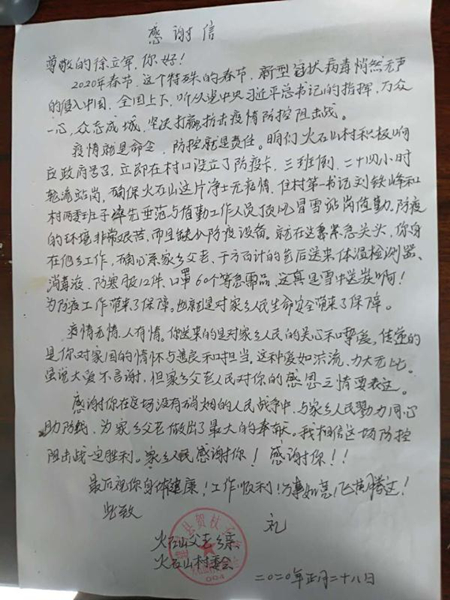 感谢信
尊敬的徐立军,你好!
2020年春节,这个特殊的春节,新型冠状病毒悄然无声
的侵入中国,全国上下,听从党中央习近平总书记的指挥,万众
一心,众志成城,坚决打赢抗击疫情防控阻击战。
疫情就是命令,防控就是责任。我们火石山村积极响
应政府号召,立即在村口设立了防疫卡,三班倒,二十四小时
轮流站岗,确保火石山这片净土无疫情,住村第一书记刘铁峰和
村两委班子率先垂范与值勤工作人员顶风冒雪站岗值勤,防疫
的环境非常艰苦,而且缺少防疫设备,就在这事紧急关头,你身
在他乡工作,确心系家乡父老,千方百计的先后送来,体温检测器、
消毒液,防寒服12件,口罩60个等急需品,这真是雪中送炭啊!
为防疫工作带来了保障,也就是对家乡人民生命安全带来了保障。
疫情无情,人有情。你送来的是对家乡人民的关心和挚爱,传递的
是你对家国的情怀与善良和担当,这种爱如洪流,力大无比。
虽说大爱不言谢,但家乡父老人民对你的感恩之情要表达。
感谢你在这场没有硝烟的人民战争中,与家乡人民勠力同心
助防,为家乡父老做出了最大的奉献,我相信这场防控
阻击战一定胜利。家乡人民感谢你!感谢你!!
最后祝你身体健康!工作顺利!万事如意!飞黄腾达!
此致
礼
火石山父老乡亲
火石山村委会
二〇二〇年正月二十八日